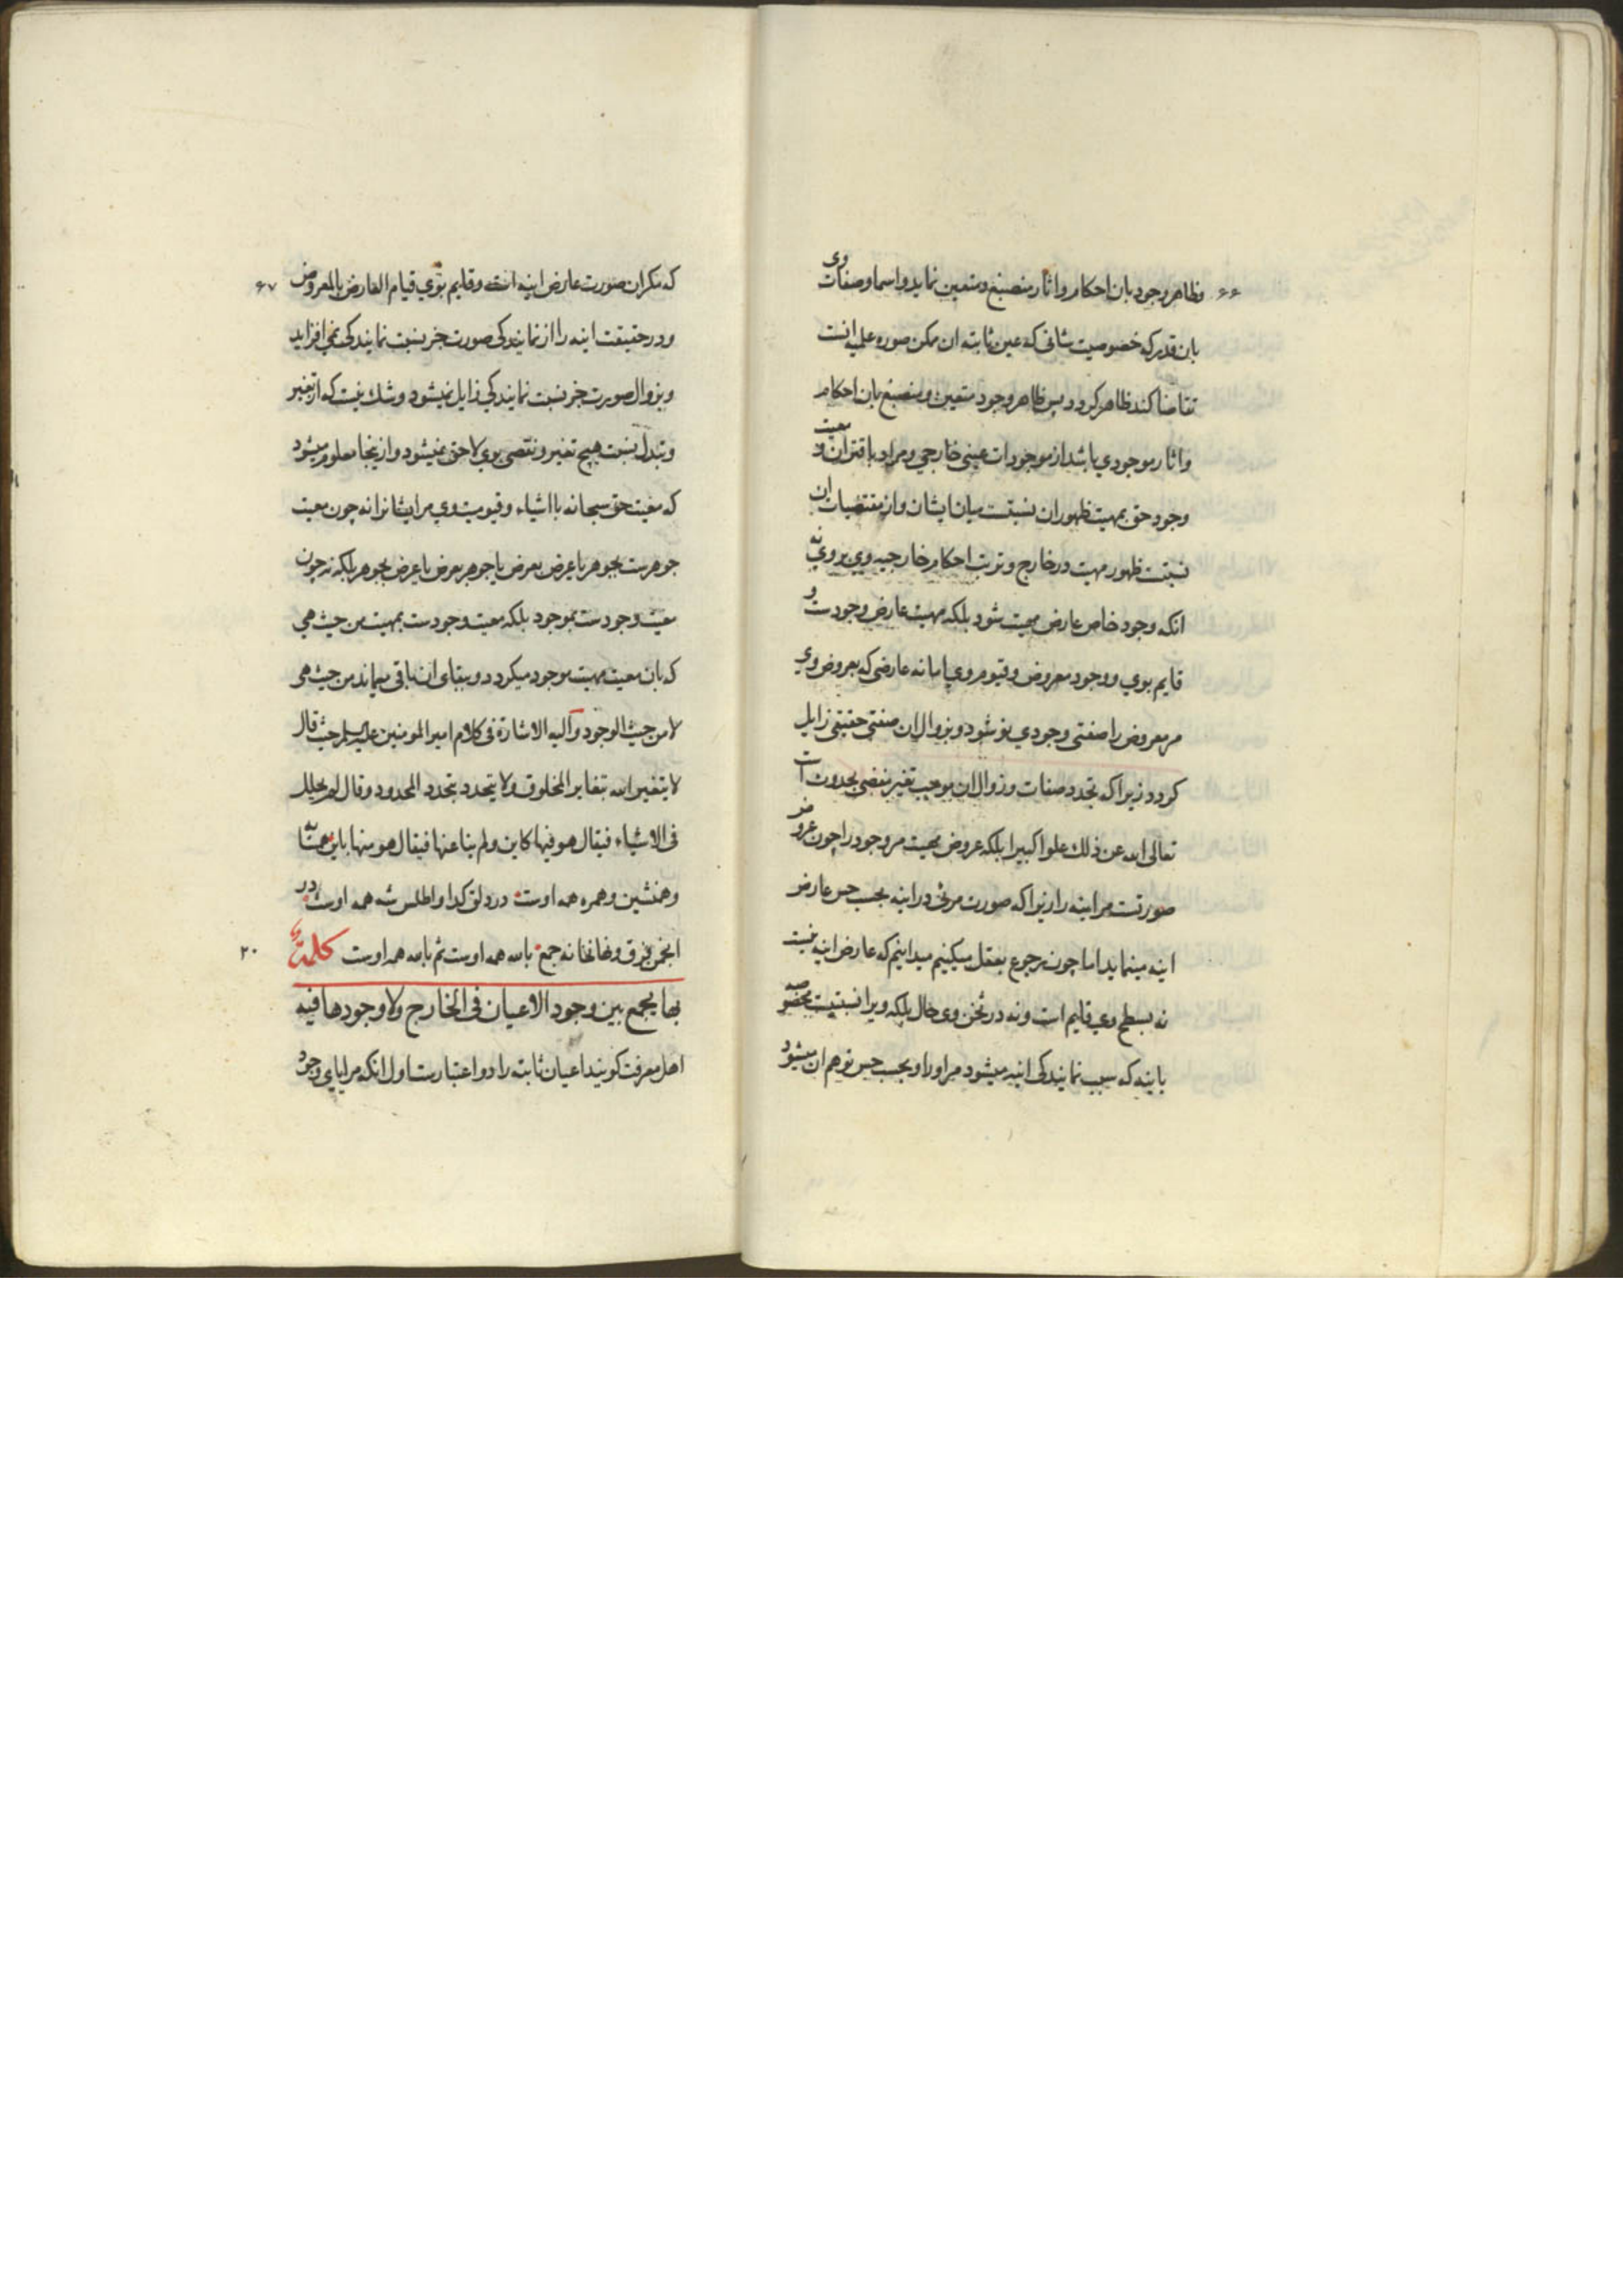 ۶۶ وظاهر وجود بان احکام واثار منصبغ ومتعین نماید واسما وصفات وی
بان قدر که خصوصیت شانی که عین ثابته ان ممکن صوره علمیه انست
تقاضا کند ظاهر کردد پس ظاهر وجود متعین ومنصبغ بان احکام
واثار موجودی باشد از موجودات عینی خارجی ومراد باقتران و معیت
وجود حق بمهیت ظهور ان نسبتست میان ایشان واز مقتضیات ان
نسبتست ظهور مهیت در خارج وترتب احکام خارجیه وی بروی نه
انکه وجود خاص عارض مهیت شود بلکه مهیت عارض وجودست و
قایم بوی ووجود معروض وقیوم وی اما نه عارضی که بعروض وی
مر معروض را صفتی وجودی نو شود وبزوال ان صفتی حقیقی زایل
کردد زیرا که تجدد صفات وزوال ان موجب تغیر مفضی بحدوث است
تعالی الله عن ذلك علوا کبیرا بلکه عروض مهیت مر وجود را چون عروض
صورتست مر اینه را زیرا که صورت مرئی در اینه بحسب حس عارض
اینه مینماید اما چون رجوع بعقل میکنیم میدانیم که عارض اینه نیست
نه بسطح وی قایم است ونه در ثخن وی حال بلکه ویرا نسبتیست مخصوصه
باینه که سبب نمایندکی اینه میشود مر اورا وبحسب حس توهم ان میشود
۶۷ که مکر ان صورت عارض اینه است وقایم بوی قیام العارض بالمعروض
ودر حقیقت اینه را از نمایندکی صورت جز نسبت نمایندکی نمی افزاید
وبزوال صورت جز نسبت نمایندکی زایل نمیشود وشك نیست که از تغیر
وتبدل نسبت هیچ تغیر ونقصی بوی لاحق نمیشود وازینجا معلوم میشود
که معیت حق سبحانه با اشیاء وقیومیت وی مر ایشانرا نه چون معیت
جوهرست بجوهر یا عرض بعرض یا جوهر بعرض یا عرض بجوهر بلکه نه چون
معیت وجودست بموجود بلکه معیت وجودست بمهیت من حیث هی
که بان معیت مهیت موجود میکردد وببقای ان باقی میماند من حیث هی
لا من حیث الوجود والیه الاشارة فی کلام امیر المومنین علیه السلم حیث قال
لا یتغیر الله بتغایر المخلوق ولا یتحدد بتحدد المحدود وقال لم یحلل
فی الاشیاء فیقال هو فیها کاین ولم ینا عنها فیقال هو منها باین همسایه
وهمنشین وهمره همه اوست در دلق کدا واطلس شه همه اوست در
انجمن فرق ونهانخانه جمع بالله همه اوست ثم بالله همه اوست کلمة ۲۰
بها یجمع بین وجود الاعیان فی الخارج ولا وجودها فیه
اهل معرفت کویند اعیان ثابته را دو اعتبارست اول انکه مرایای وجود